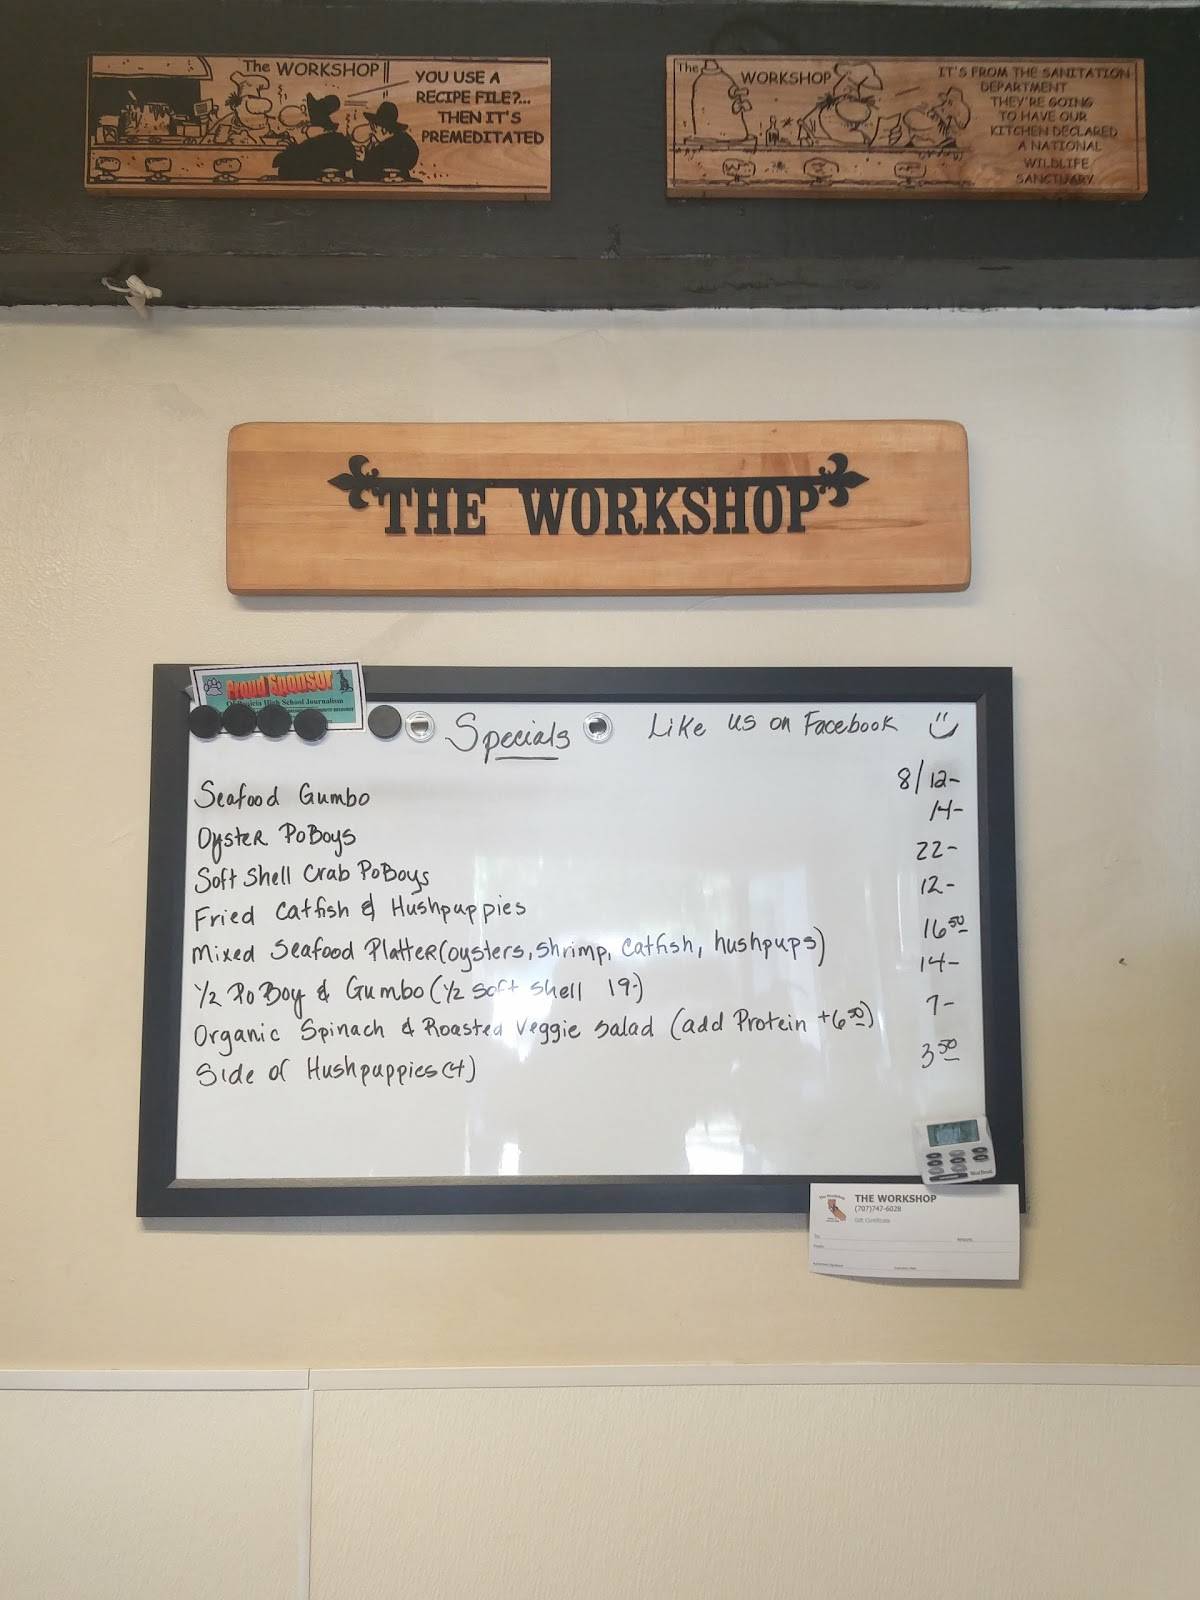 The WORKSHOP
YOU USE A
RECIPE FILE?...
THEN IT'S
PREMEDITATED
The
WORKSHOP
IT'S FROM THE SANITATION
DEPARTMENT
THEY'RE GOING
TO HAVE OUR
KITCHEN DECLARED
A NATIONAL
WILDLIFE
SANCTUARY.
THE WORKSHOP
Proud Sponsor
Of Benicia High School Journalism
Specials Like us on Facebook
Seafood Gumbo 8/12-
Oyster PoBoys 14-
Soft Shell Crab PoBoys 22-
Fried Catfish & Hushpuppies 12-
Mixed Seafood Platter (oysters, shrimp, catfish, hushpups) 16 50
1/2 PoBoy & Gumbo (1/2 soft shell 19-) 14-
Organic Spinach & Roasted Veggie Salad (add Protein +6 50) 7-
Side of Hushpuppies (4) 3 50
THE WORKSHOP
(707)747-6028
Gift Certificate